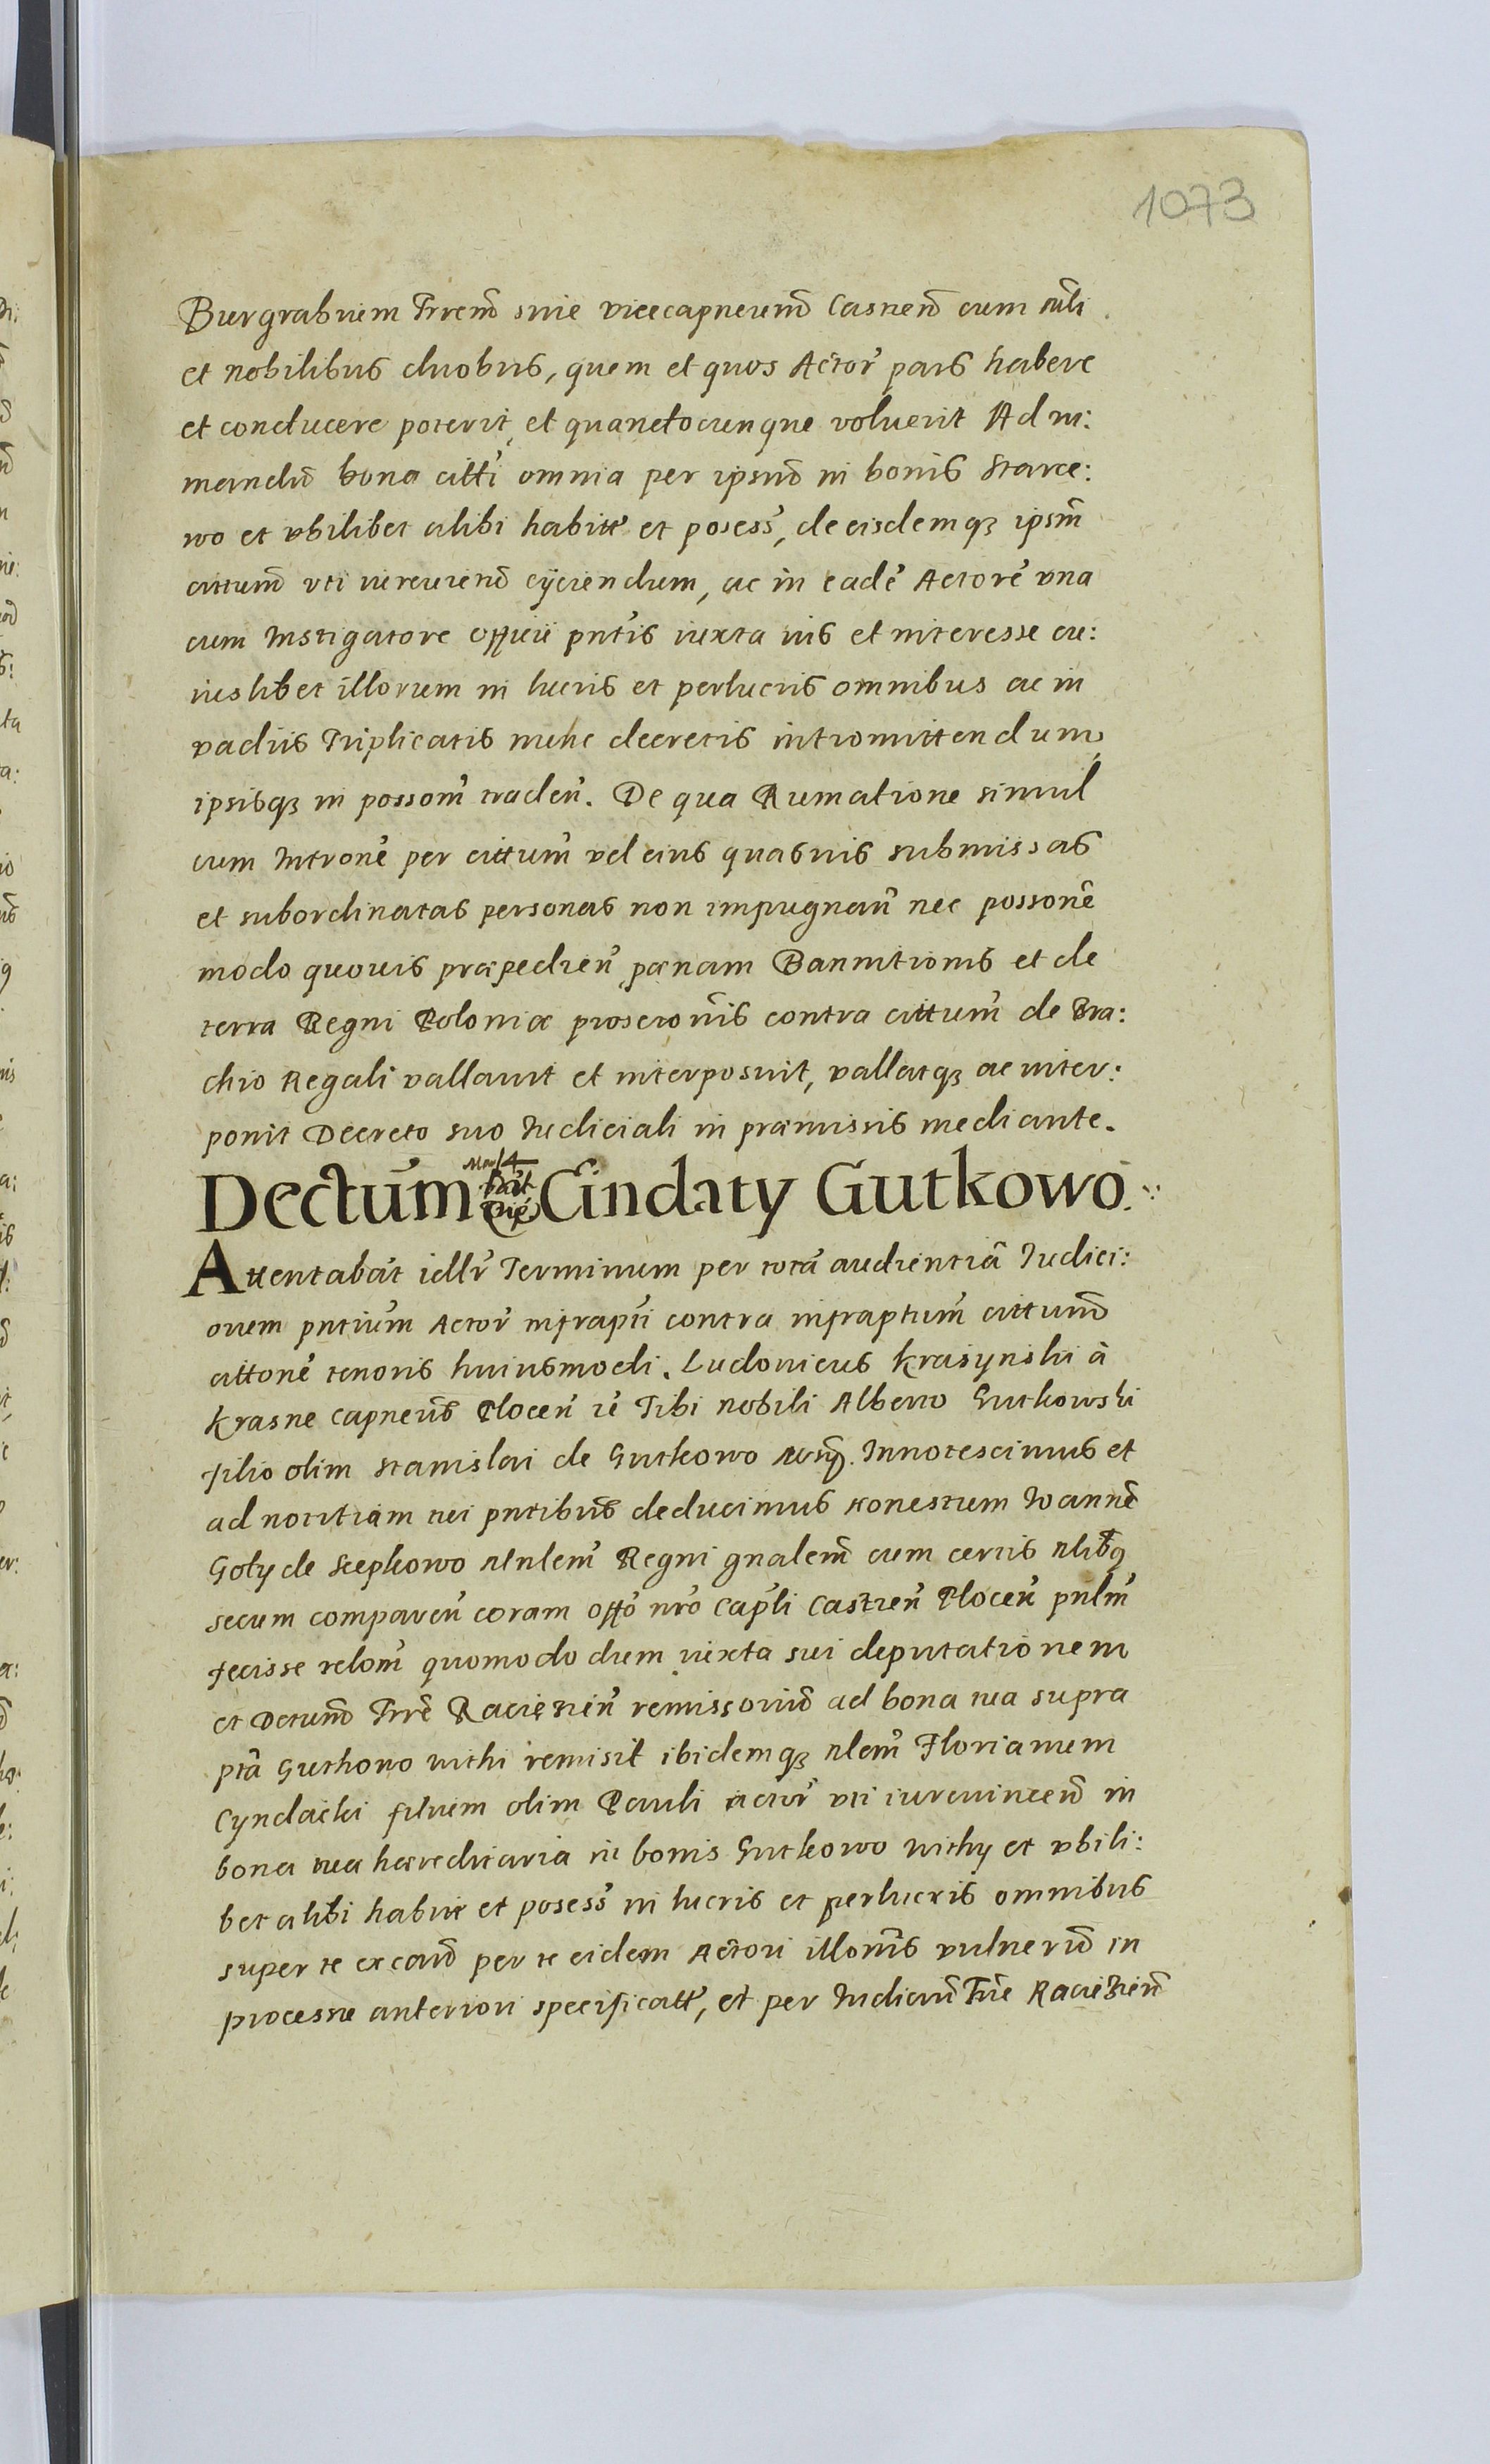 1073
Burgrabium Trrem̃ siue vicecapneum̃ Castren̄ cum mli
et nobilibus duobus, quem et quos Actor̃ pars habere
et conducere poterit, et quandocunque voluerit Ad ru:
mandū bona citti omnia per ipsum̃ in bonis Starce:
wo et vbilibet alibi habitt̃ et posess̃, de eisdemq̨ ipsm̃
cittum̃ vti iurevictū eijciendum, ac in eadē Actorē vna
cum Instigatore officii pntis iuxta ius et interesse cu:
iuslibet illorum in lucris et perlucris omnibus ac in
vadiis Triplicatis nunc decretis intromittendum,
ipsisq̨ in possom̃ traden̄. De qua Rumatione simul
cum Intronē per cittum̃ vel eius quasuis submissas
et subordinatas personas non impugnan̄ nec possonē
modo quouis præpedien̄ pænam Bannitionis et de
terra Regni Poloniæ proscronis̃ contra cittum̃ de Bra:
chio Regali vallauit et interposuit, vallatq̨ ac inter:
ponit Decreto suo Iudiciali in præmissis mediante.
Dectum̃ Cindaty Gutkowo.
Attentabat̃ iellr̃ Terminum per totā audientiā Iudici:
ouem pntium̃ Actor̃ infrapti contra infraptum̃ cittum̃
cittonē tenoris huiusmodi. Ludouicus Krasynski à
Krasne Capneus̃ Plocen̄ ic̃ Tibi nobili Alberto Gutkowski
filio olim Stanislai de Gutkowo . Innotescimus et
ad notitiam tui pntibus̃ deducimus honestum Ioannē
Goly de Scepkowo Mnlem̃ Regni gnalem̃ cum certis nlibq̨
secum comparen̄ coram offo nr̃o Capli Castren̄ Plocen̄ pnlm̃
fecisse relom̃ quomodo dum iuxta sui deputationem
et Dctum̃ Trrē Racięzien̄ remissoriū ad bona tua supra
ptā Gutkowo withi remisit ibidemq̨ nlem̃ Florianum
Cyndacki filium olim Pauli actor̃ vti iurevincen̄ in
bona tua hæreditaria in bonis Gutkowo withy et vbili:
bet alibi habitt̃ et posess̃ in lucris et perlucris omnibus
super te ex caū per te eidem Actori illonis̃ vulnerū in
processu anteriori specificatt̃, et per Iudiciū Trre Racięzien̄